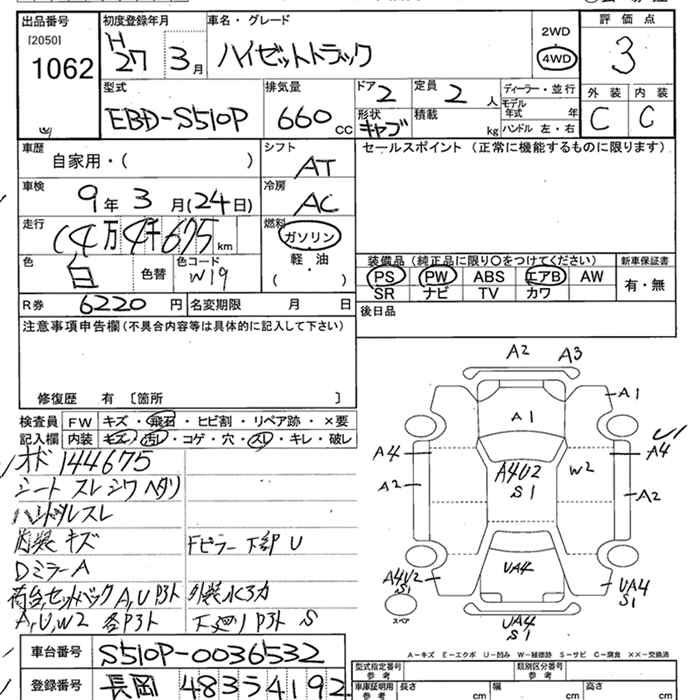 出品番号
[2050]
1062
初度登録年月
H
27 3月
車名・グレード
ハイゼットトラック
2WD
・
4WD
評価点
3
型式
EBD-S510P
排気量
660 cc
ドア
2
定員
2 人
形状
キャブ
積載
kg
ディーラー・並行
モデル
年式 年
ハンドル 左・右
外装 内装
C C
車歴
自家用・( )
シフト
AT
セールスポイント (正常に機能するものに限ります)
車検
9年3月(24日)
冷房
AC
走行
14万4千675 km
燃料
ガソリン
・
軽油
・
( )
色
白 色替
色コード
W19
装備品(純正品に限り〇をつけてください)
新車保証書
PS PW ABS エアB AW
SR ナビ TV カワ
有・無
R券 6220 円
名変期限 月 日
後日品
注意事項申告欄(不具合内容等は具体的に記入して下さい)
修復歴 有 [箇所 ]
検査員
記入欄
FW キズ・飛石・ヒビ割・リペア跡・×要
内装 キズ・汚レ・コゲ・穴・スレ・キレ・破レ
オド 144675
シート スレ シワ ヘタリ
ハンドルスレ
内装 キズ Fピラー下部 U
DミラーA
荷台セットバックA,U P3ト
A,U,W2 各P3ト 下廻り P3ト S
A2 A3
A1
A1
A4
A4
A2
A4U2
S1
W2
A2
UA4
A4U2
S1
UA4
S1
スペア
UA4
S1
A-キズ E-エクボ U-凹み W-補修跡 S-サビ C-腐食 ××-交換済
車台番号 S510P-0036532
登録番号 長岡 483 え 4192
型式指定番号
参考
類別区分番号
参考
車庫証明用
参考
長さ
cm
幅
cm
高さ
cm